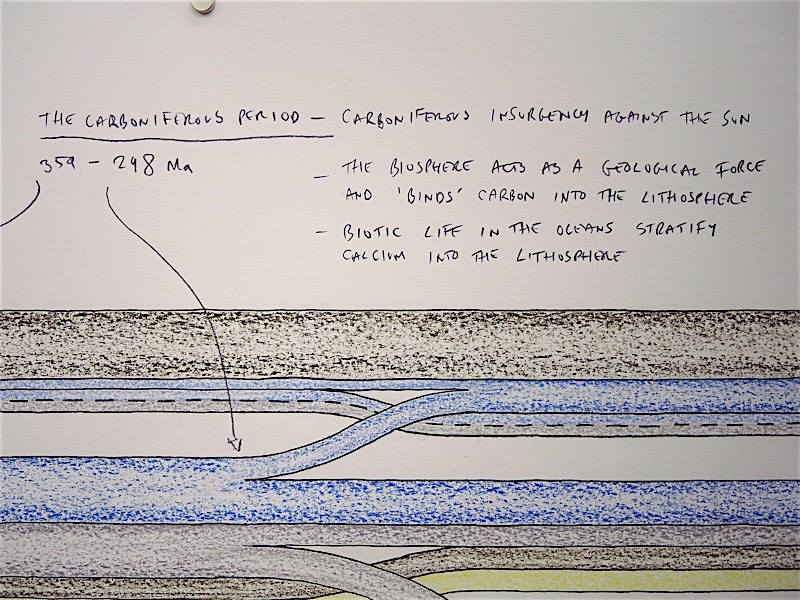 THE CARBONIFEROUS PERIOD – CARBONIFEROUS INSURGENCY AGAINST THE SUN
359 – 298 Ma
– THE BIOSPHERE ACTS AS A GEOLOGICAL FORCE
AND 'BINDS' CARBON INTO THE LITHOSPHERE
– BIOTIC LIFE IN THE OCEANS STRATIFY
CALCIUM INTO THE LITHOSPHERE